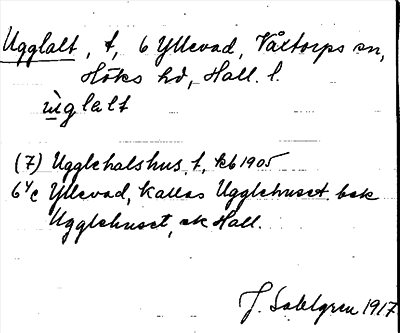 Ugglalt, t, 6 Yllevad, Våxtorps sn,
Höks hd, Hall. l.
ùglalt
(7) Ugglehalshus t, kb 1905
6 Yllevad, kallas Ugglehuset
Ugglehuset, ek Hall.
J. Sahlgren 1917